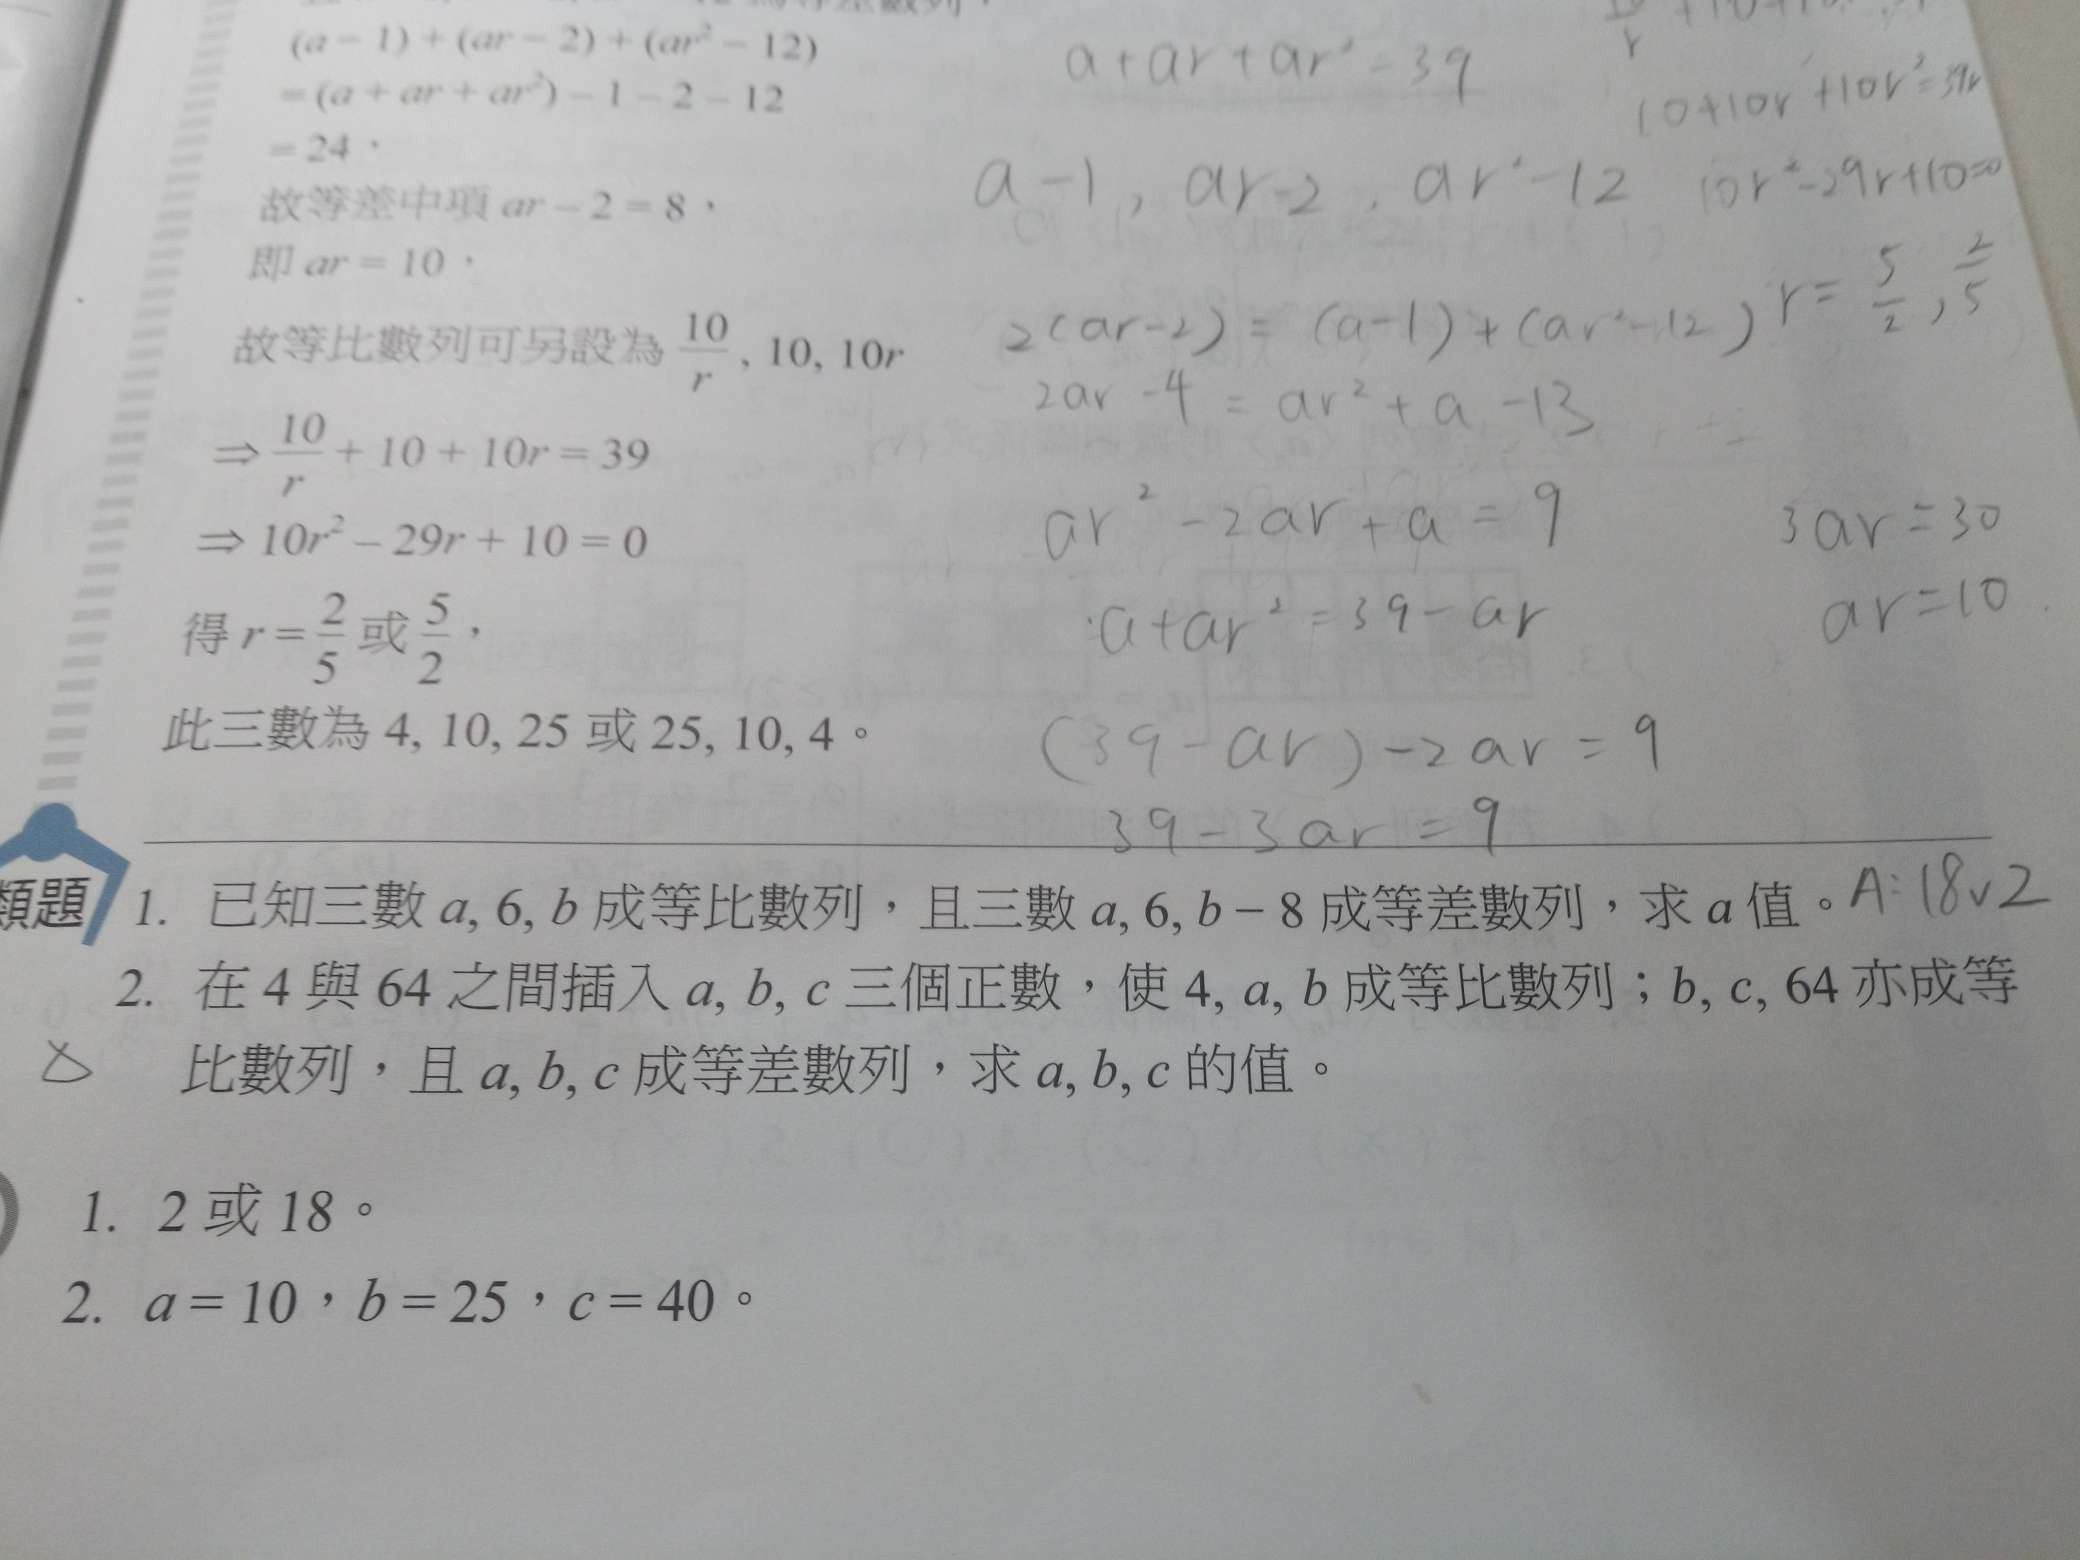 (a − 1) + (ar − 2) + (ar² − 12)
= (a + ar + ar²) − 1 − 2 − 12
= 24，
故等差中項 ar − 2 = 8，
即 ar = 10，
故等比數列可另設為 10/r , 10, 10r
⇒ 10/r + 10 + 10r = 39
⇒ 10r² − 29r + 10 = 0
得 r = 2/5 或 5/2，
此三數為 4, 10, 25 或 25, 10, 4。
a + ar + ar² = 39
a − 1 , ar − 2 , ar² − 12
2(ar − 2) = (a − 1) + (ar² − 12)
2ar − 4 = ar² + a − 13
ar² − 2ar + a = 9
a + ar² = 39 − ar
(39 − ar) − 2ar = 9
39 − 3ar = 9
10 + 10r + 10r² = 39r
10r² − 29r + 10 = 0
r = 5/2 , 2/5
3ar = 30
ar = 10
類題
1. 已知三數 a, 6, b 成等比數列，且三數 a, 6, b − 8 成等差數列，求 a 值。A: 18v2
2. 在 4 與 64 之間插入 a, b, c 三個正數，使 4, a, b 成等比數列；b, c, 64 亦成等
比數列，且 a, b, c 成等差數列，求 a, b, c 的值。
1. 2 或 18。
2. a = 10，b = 25，c = 40。